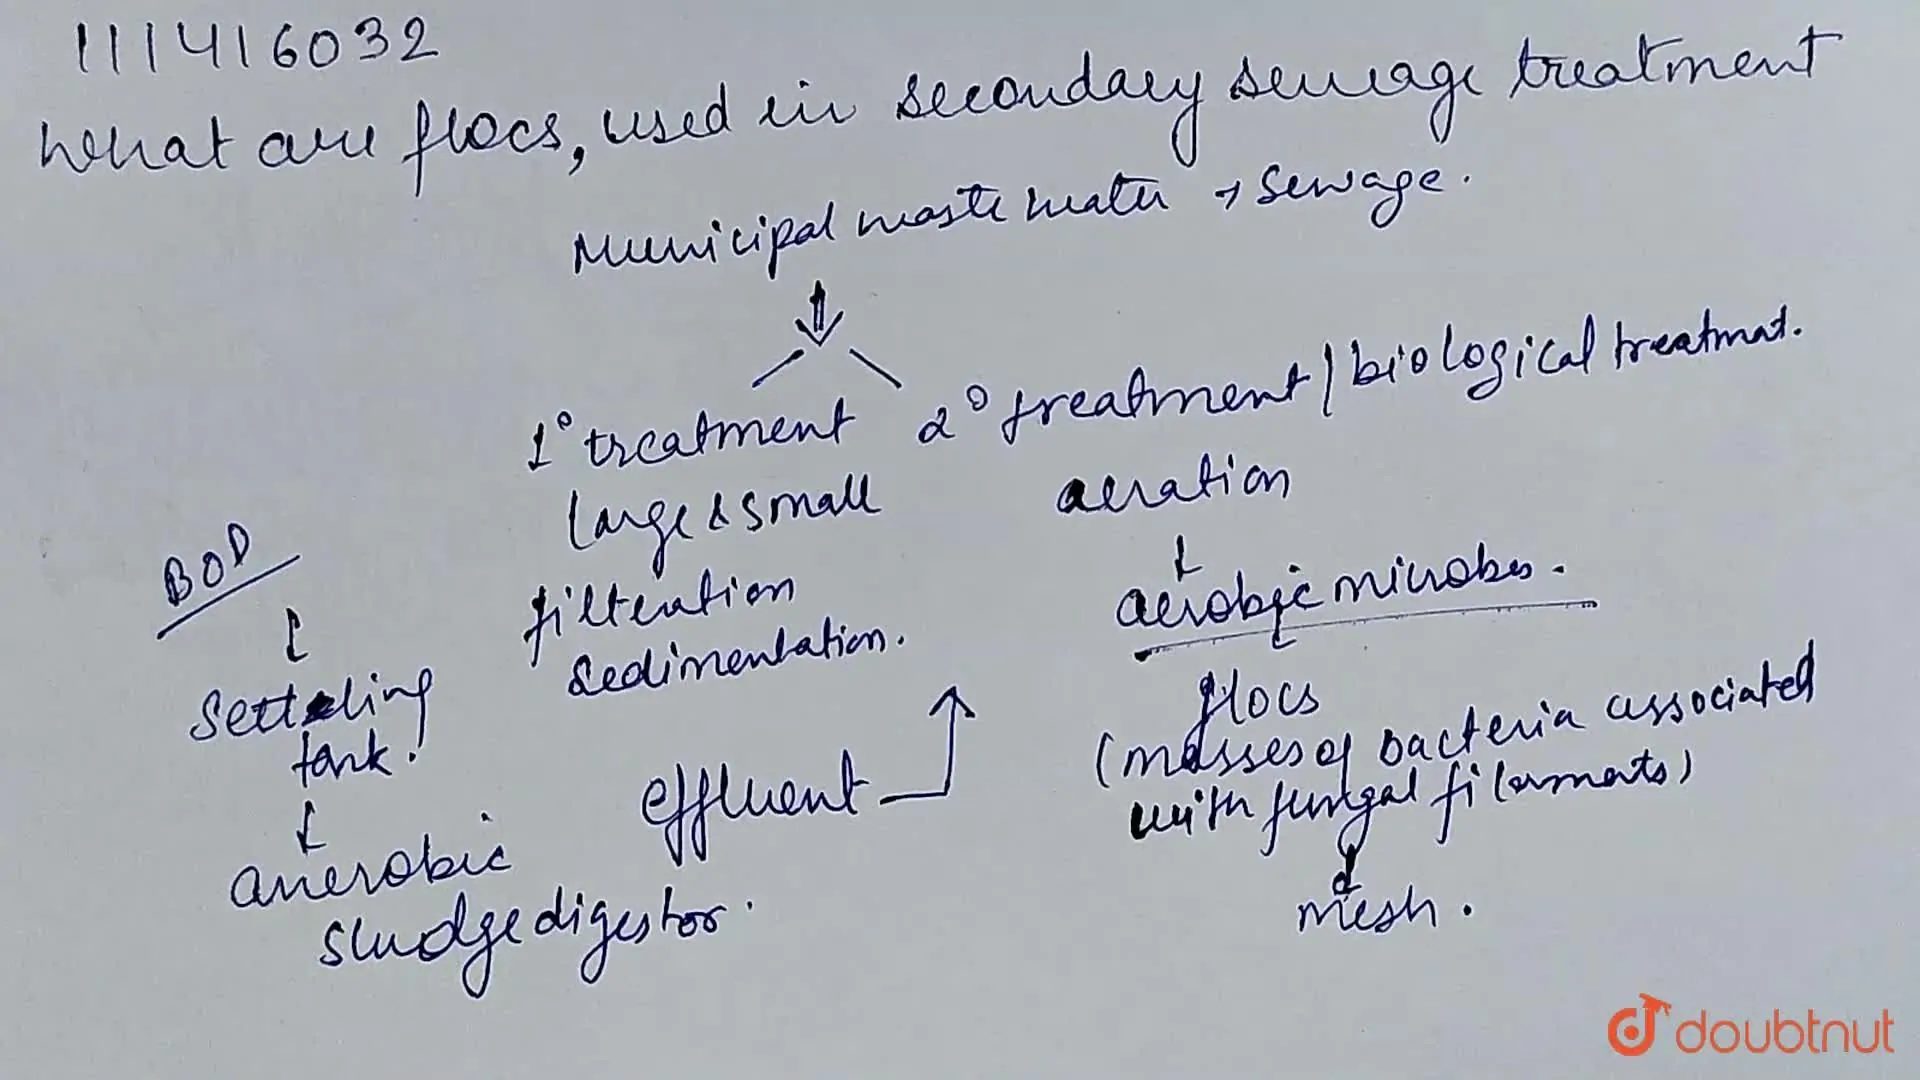 111416032
What are flocs, used in secondary sewage treatment
Municipal waste water → sewage.
1° treatment 2° treatment / biological treatmat.
large & small
filteration
sedimentation.
aeration
aerobic microbes.
flocs
(masses of bacteria associated
with fungal filaments)
mesh.
effluent
BOD
settling
tank.
anerobic
sludge digestor.
doubtnut